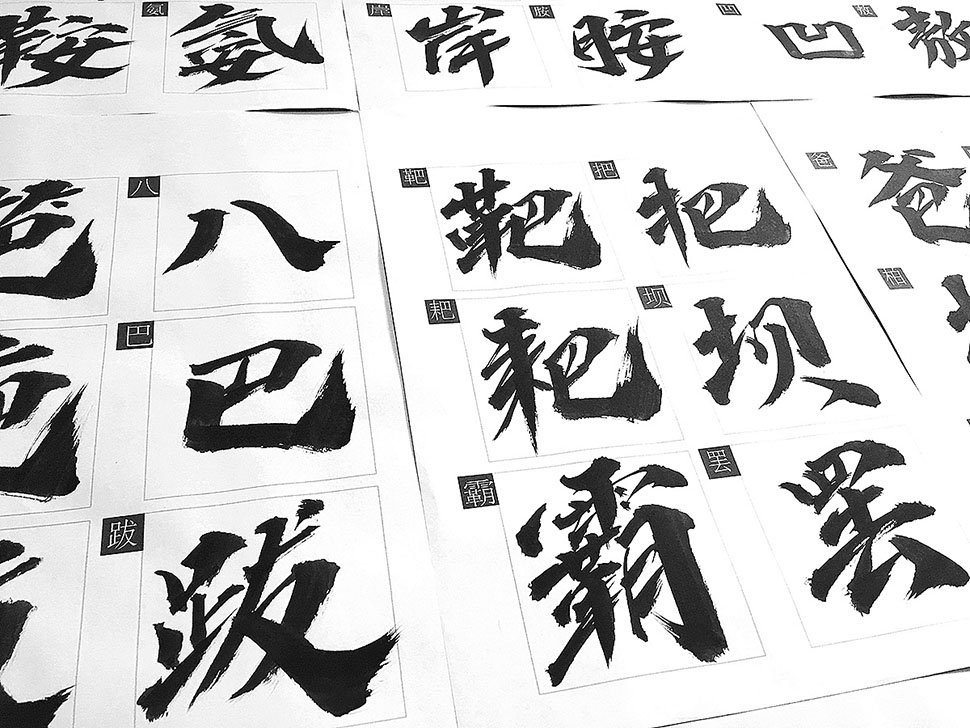 鞍 氨 氨
岸 岸 胺 胺
凹 凹
八 八
巴 巴
跋 跋
靶 靶 把 把
耙 耙 坝 坝
霸 霸 罢 罢
爸 爸